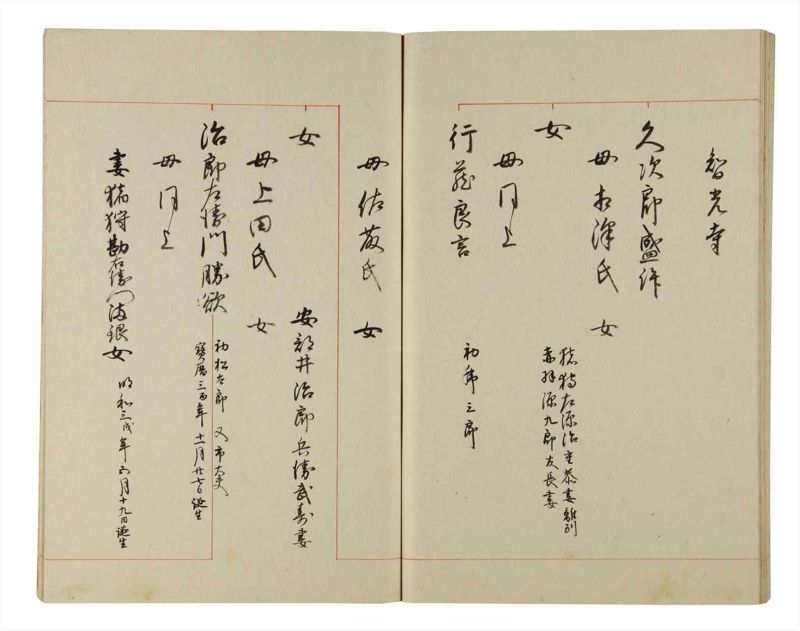 智光寺
久次郎盛作
母 赤澤氏 女
女
猪狩左源治重恭妻離別
赤羽源九郎友長妻
母同上
行蔵良言
初弟三郎
母 佐藤氏 女
女
安部井治郎兵衛武寿妻
母 上田氏 女
治郎左衛門勝欲
初松左郎 又市太夫
寳暦三酉年十一月廿七日誕生
母同上
妻猪狩勘右衛門満銀女
明和三戌年五月十九日誕生